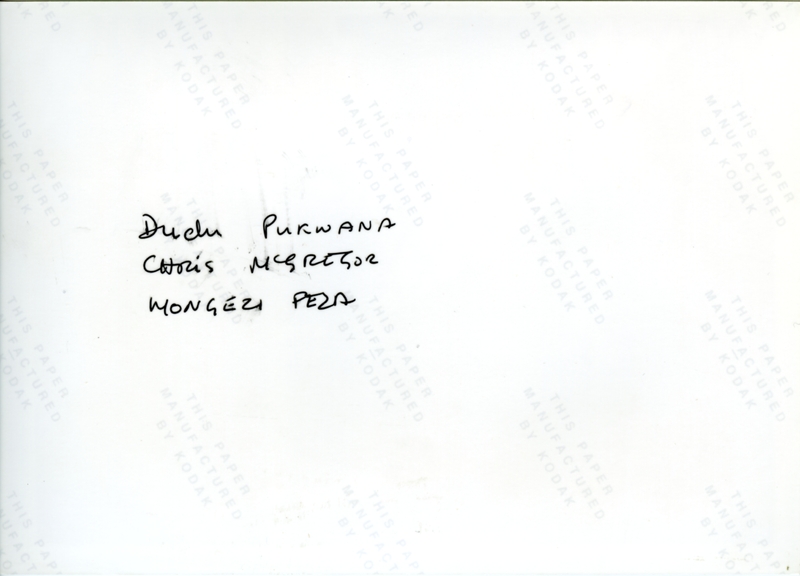 Dudu PUKWANA
CHRIS McGREGOR
MONGEZI PEZA
THIS PAPER
MANUFACTURED
BY KODAK